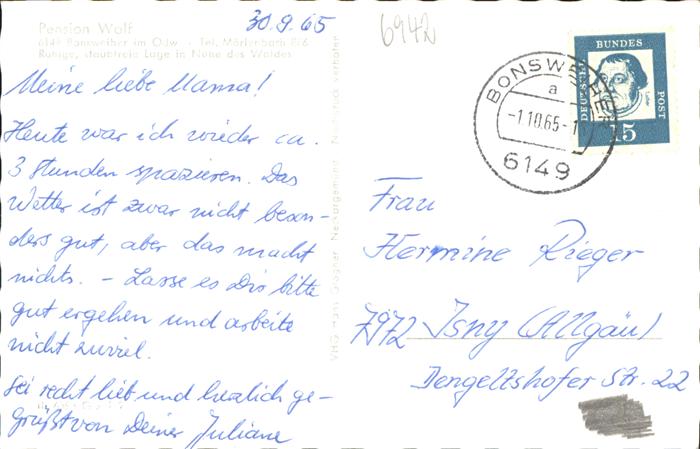 30.9.65
6942
Pension Wolf
6149 Bonsweiher im Odw. · Tel. Mörlenbach 8/6
Ruhige, staubfreie Lage in Nähe des Waldes
Meine liebe Mama!
Heute war ich wieder ca.
3 Stunden spazieren. Das
Wetter ist zwar nicht beson-
ders gut, aber das macht
nichts. – Lasse es Dir bitte
gut ergehen und arbeite
nicht zuviel.
Sei recht lieb und herzlich ge-
grüßt von Deiner Juliane
BONSWEIHER
a
-1.10.65-1
6149
DEUTSCHE BUNDESPOST
Luther
15
Frau
Hermine Rieger
7972 Isny (Allgäu)
Dengeltshofer Str. 22